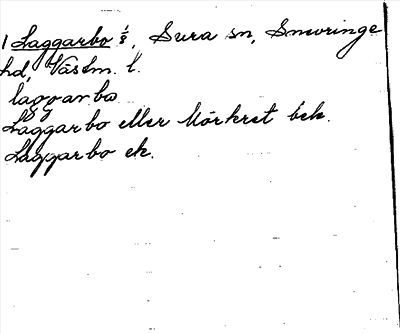 1 Laggarbo 1/8, Sura sn, Snevringe
hd, Västm. l.
laggarbo
Laggarbo eller Mörkret bek.
Laggarbo ek.